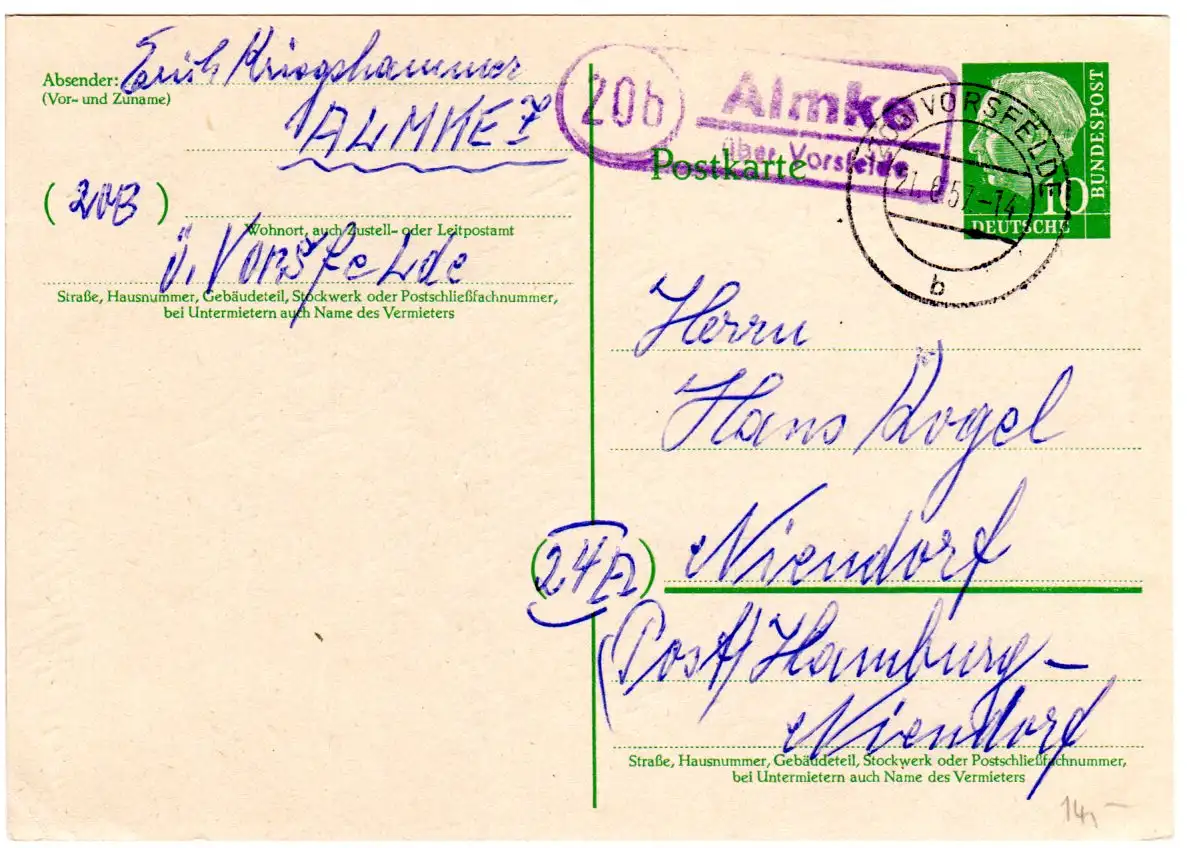 Absender: Erich Kriegshammer
(Vor- und Zuname)
ALMKE 7
(20B)
Wohnort, auch Zustell- oder Leitpostamt
ü. Vorsfelde
Straße, Hausnummer, Gebäudeteil, Stockwerk oder Postschließfachnummer,
bei Untermietern auch Name des Vermieters
20b Almke
über Vorsfelde
Postkarte
VORSFELDE
21.6.57-14
b
10
DEUTSCHE
BUNDESPOST
Herrn
Hans Kogel
(24A) Niendorf
(Post) Hamburg-
Niendorf
Straße, Hausnummer, Gebäudeteil, Stockwerk oder Postschließfachnummer,
bei Untermietern auch Name des Vermieters
14,-